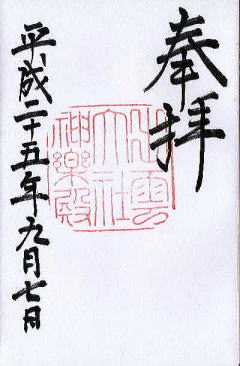 奉拝
出雲
大社
神楽殿
平成二十五年九月七日